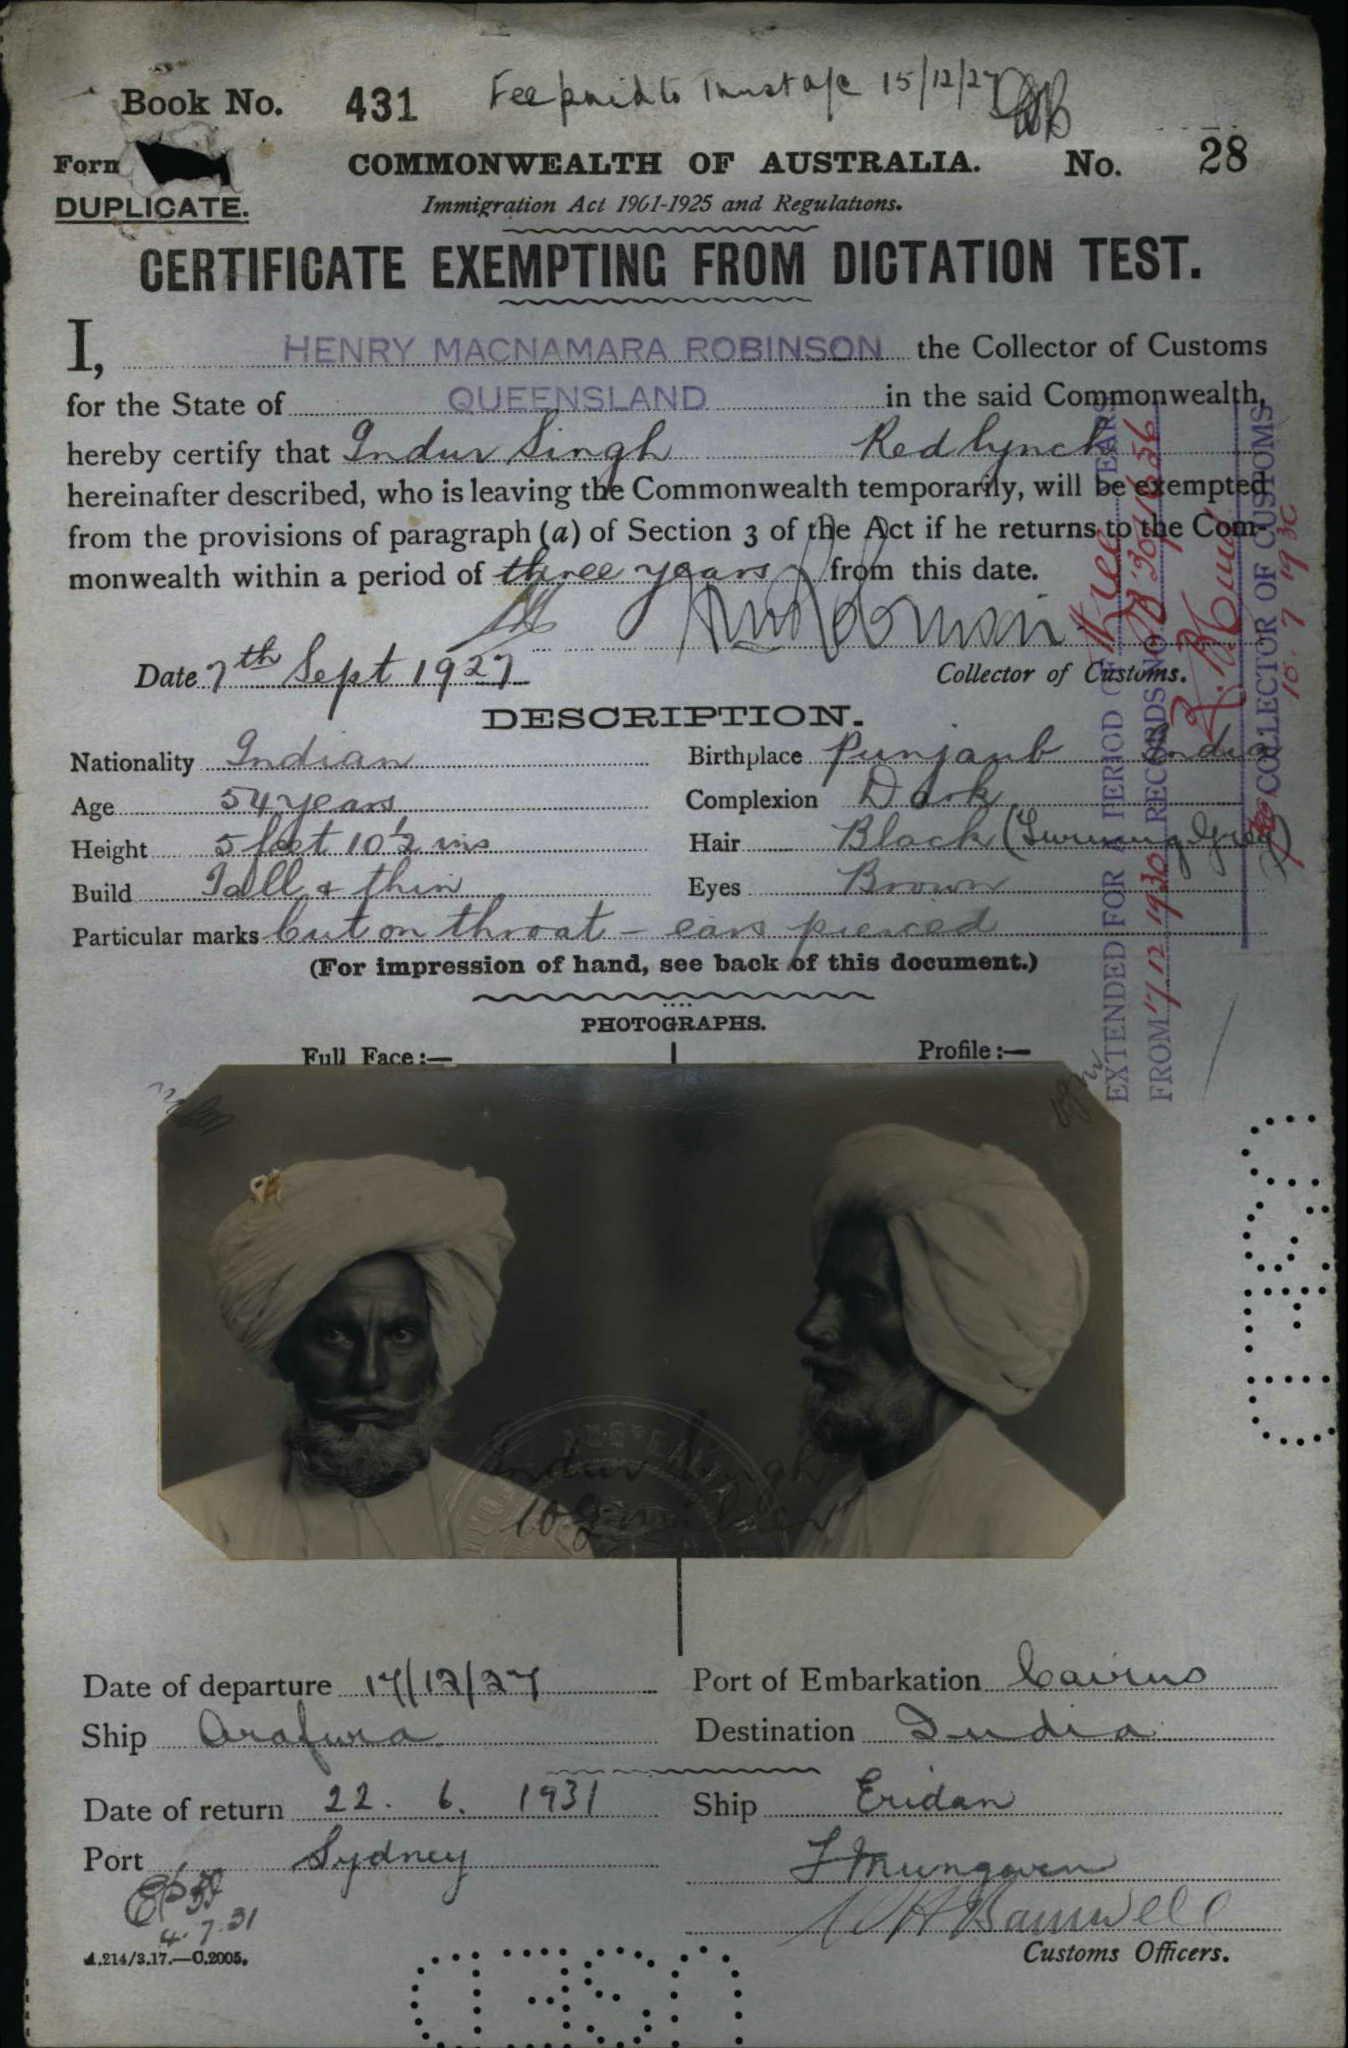 Book No. 431 Fee paid to Trust a/c 15/12/27
Form
COMMONWEALTH OF AUSTRALIA. No. 28
DUPLICATE.
Immigration Act 1901-1925 and Regulations.
CERTIFICATE EXEMPTING FROM DICTATION TEST.
I, HENRY MACNAMARA ROBINSON the Collector of Customs
for the State of QUEENSLAND in the said Commonwealth,
hereby certify that Indur Singh Redlynch
hereinafter described, who is leaving the Commonwealth temporarily, will be exempted
from the provisions of paragraph (a) of Section 3 of the Act if he returns to the Com-
monwealth within a period of three years from this date.
Date 7th Sept 1927
Collector of Customs.
DESCRIPTION.
Nationality Indian Birthplace Punjaub India
Age 54 years Complexion Dark
Height 5 feet 10½ ins Hair Black (Turning Grey)
Build Tall & thin Eyes Brown
Particular marks Cut on throat - ears pierced
(For impression of hand, see back of this document.)
PHOTOGRAPHS.
Full Face:— Profile:—
Indur Singh
EXTENDED FOR A PERIOD OF three YEARS
FROM 7/12/1930 RECORDS NO
COLLECTOR OF CUSTOMS
10. 7 19 30
Date of departure 17/12/27 Port of Embarkation Cairns
Ship Arafura Destination India
Date of return 22. 6. 1931 Ship Eridan
Port Sydney
4.7.31
A.214/3.17.—C.2005.
Customs Officers.
USED